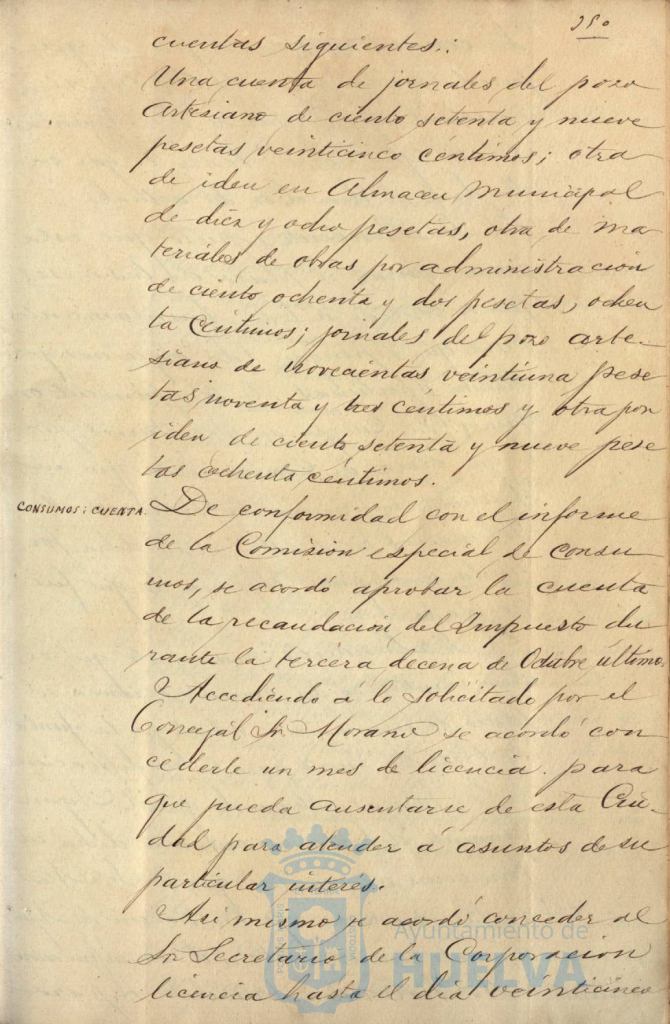 250
cuentas siguientes:
Una cuenta de jornales del pozo
Artesiano de ciento setenta y nueve
pesetas veinticinco centimos; otra
de iden en Almacen Municipal
de diez y ocho pesetas, otra de ma
teriales de obras por administración
de ciento ochenta y dos pesetas, ochen
ta céntimos; jornales del pozo arte-
siano de novecientas veintiuna pese
tas noventa y tres céntimos y otra por
iden de ciento setenta y nueve pese
tas ochenta céntimos.
CONSUMOS: CUENTA. De conformidad con el informe
de la Comisión especial de consu
mos, se acordó aprobar la cuenta
de la recaudación del Impuesto du
rante la tercera decena de Octubre último.
Accediendo á lo solicitado por el
Concejál Sr. Morano se acordó con
cederle un mes de licencia para
que pueda ausentarse de esta Ciu-
dad para atender á asuntos de su
particular interés.
Asi mismo se acordó conceder al
Sr. Secretario de la Corporacion
licencia hasta el dia veinticinco
Ayuntamiento de
HUELVA